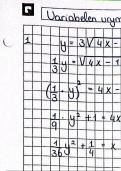 Variabelen vrijm
1 y = 3√4x -
1/3 y = √4x - 1
(1/3 · y)² = 4x -
1/9 · y² + 1 = 4x
1/36 y² + 1/4 = x